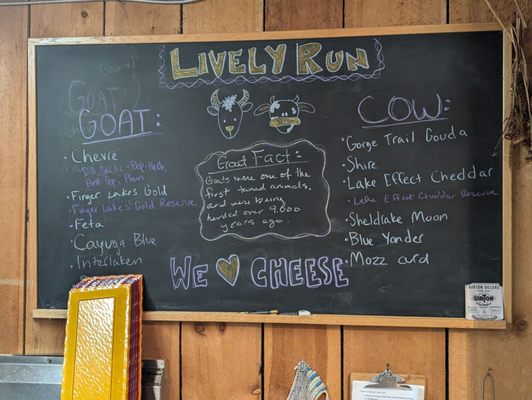 LIVELY RUN
GOAT:
• Chevre
Dill, Garlic-Pep-Herb,
Plain
• Finger Lakes Gold
• Finger Lakes Gold Reserve
• Feta
• Cayuga Blue
• Interlaken
Goat Fact:
Goats were one of the
first tamed animals,
and were being
herded over 9,000
years ago.
WE ♡ CHEESE
COW:
• Gorge Trail Gouda
• Shire
• Lake Effect Cheddar
• Lake Effect Cheddar Reserve
• Sheldrake Moon
• Blue Yonder
• Mozz curd